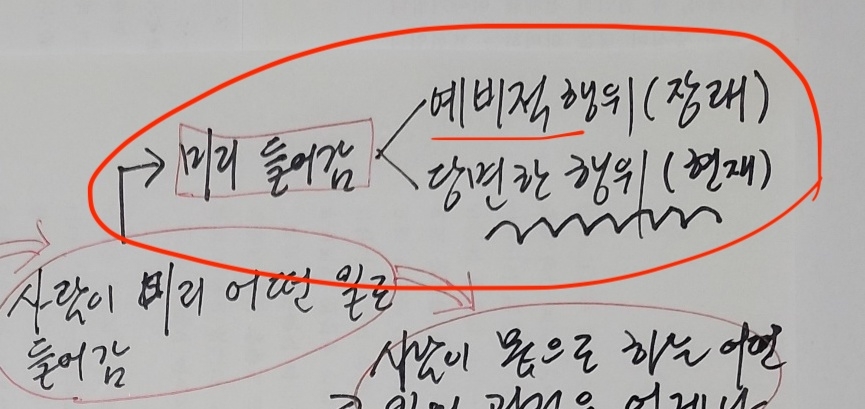 예비적 행위 (장래)
미리 들어감
당면한 행위 (현재)
사람이 미리 어떤 일로
들어감
사람이 몸으로 하는 어떤